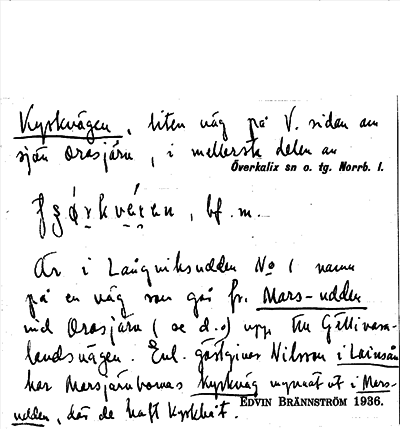 Kyrkvägen, liten väg på V. sidan om
sjön Orasjärv, i mellersta delen av
Överkalix sn o. tg. Norrb. l.
bf. m.
Är i Långviksudden No 1 namn
på en väg som går fr. Mars-udden
vid Orasjärv (se d. o) upp till Gellivare-
landsvägen. Enl. gästgivar Nilsson i Lansån
har Marsjärvborna kyrkväg mynnat ut i Mars-
udden, där de haft kyrkbåt.
EDVIN BRÄNNSTRÖM 1936.